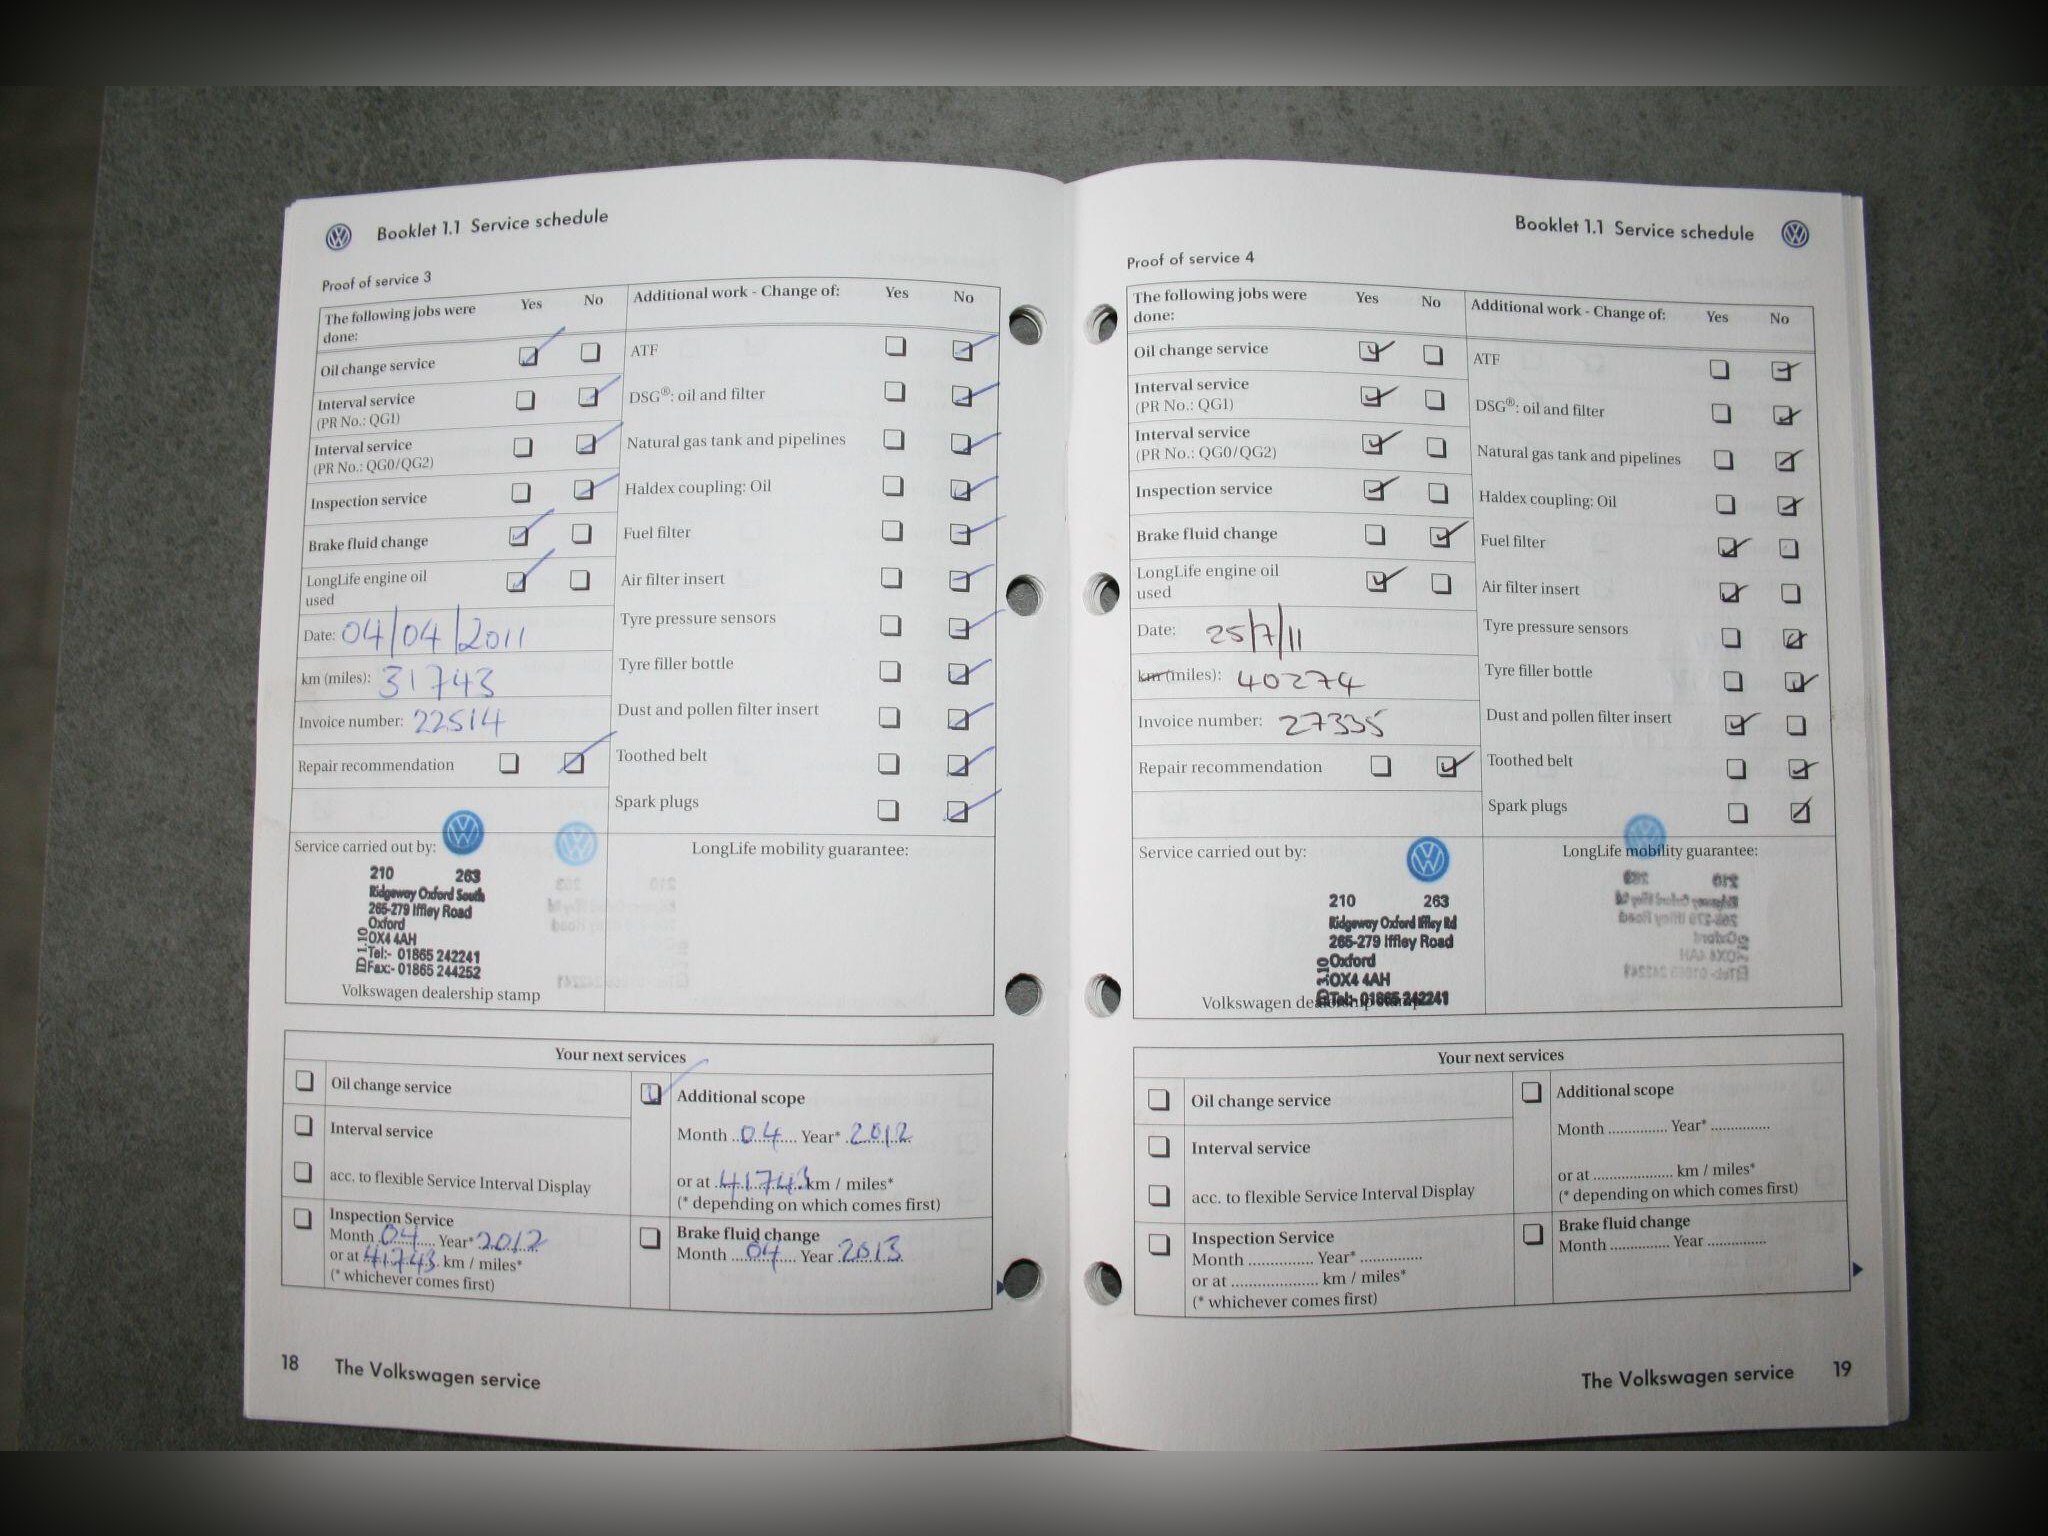 Booklet 1.1 Service schedule
Proof of service 3
The following jobs were done: Yes No
Oil change service
Interval service
(PR No.: QG1)
Interval service
(PR No.: QG0/QG2)
Inspection service
Brake fluid change
LongLife engine oil
used
Date: 04/04/2011
km (miles): 31743
Invoice number: 22514
Repair recommendation
Additional work - Change of: Yes No
ATF
DSG®: oil and filter
Natural gas tank and pipelines
Haldex coupling: Oil
Fuel filter
Air filter insert
Tyre pressure sensors
Tyre filler bottle
Dust and pollen filter insert
Toothed belt
Spark plugs
Service carried out by:
210 263
Ridgeway Oxford South
265-279 Iffley Road
Oxford
OX4 4AH
Tel:- 01865 242241
Fax:- 01865 244252
Volkswagen dealership stamp
LongLife mobility guarantee:
Your next services
Oil change service
Interval service
acc. to flexible Service Interval Display
Inspection Service
Month 04 Year* 2012
or at 41743 km / miles*
(* whichever comes first)
Additional scope
Month 04 Year* 2012
or at 41743 km / miles*
(* depending on which comes first)
Brake fluid change
Month 04 Year 2013
18 The Volkswagen service
Booklet 1.1 Service schedule
Proof of service 4
The following jobs were done: Yes No
Oil change service
Interval service
(PR No.: QG1)
Interval service
(PR No.: QG0/QG2)
Inspection service
Brake fluid change
LongLife engine oil
used
Date: 25/7/11
km (miles): 40274
Invoice number: 27335
Repair recommendation
Additional work - Change of: Yes No
ATF
DSG®: oil and filter
Natural gas tank and pipelines
Haldex coupling: Oil
Fuel filter
Air filter insert
Tyre pressure sensors
Tyre filler bottle
Dust and pollen filter insert
Toothed belt
Spark plugs
Service carried out by:
210 263
Ridgeway Oxford Iffley Rd
265-279 Iffley Road
Oxford
OX4 4AH
Tel:- 01865 242241
Volkswagen dealership stamp
LongLife mobility guarantee:
Your next services
Oil change service
Interval service
acc. to flexible Service Interval Display
Inspection Service
Month .............. Year* ..............
or at .................... km / miles*
(* whichever comes first)
Additional scope
Month .............. Year* ..............
or at .................... km / miles*
(* depending on which comes first)
Brake fluid change
Month .............. Year ..............
The Volkswagen service 19